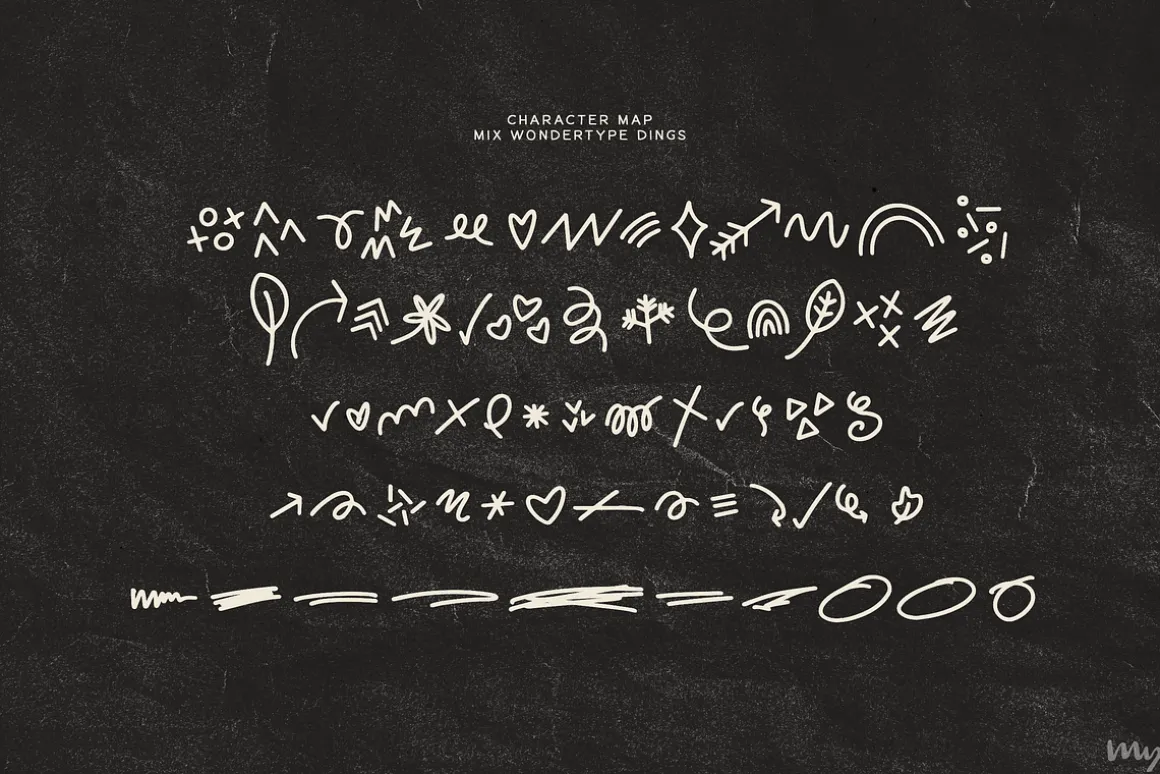 CHARACTER MAP
MIX WONDERTYPE DINGS
my